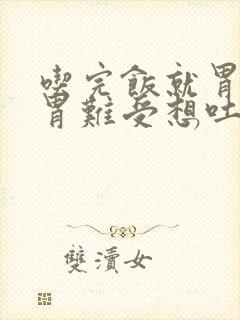 喫完飯就胃
胃難受想吐,
雙瀆女